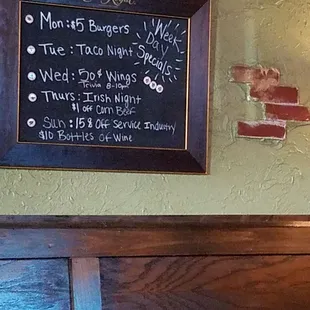 Mon: $5 Burgers
Week
Day
Specials
Tue: Taco Night
Wed: 50¢ Wings
Trivia 8-10pm
Thurs: Irish Night
$1 off Corn Beef
Sun: 15% Off Service Industry
$10 Bottles of Wine